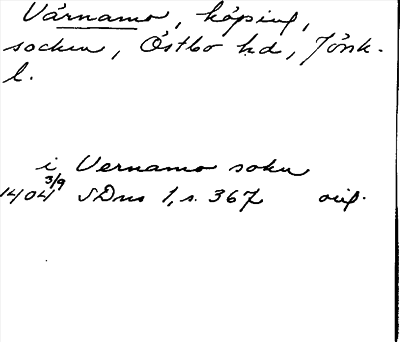 Värnamo, köping,
socken, Östbo hd, Jönk.
l.
i Vernamo sokn
1404 3/9 SDns 1, s. 367 orig.